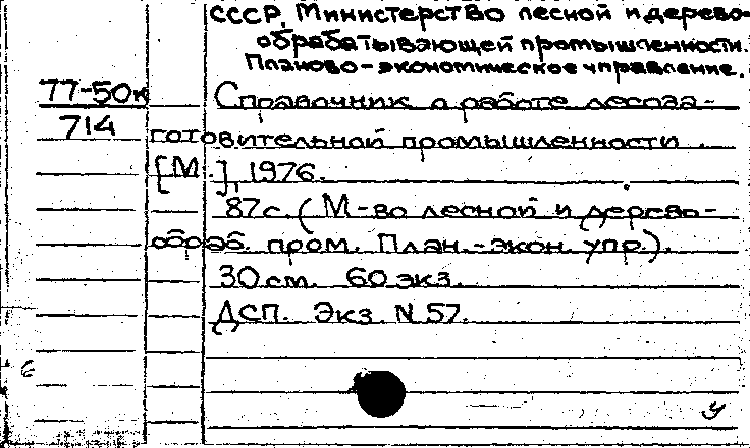 СССР, Министерство лесной и дерево-
обрабатывающей промышленности.
Планово-экономическое управление.
77-50к
714
Справочник о работе лесоза-
готовительной промышленности.
[М.], 1976.
87с. (М-во лесной и дерево-
обраб. пром. План.-экон. упр.).
30 см. 60 экз.
ДСП. Экз. N 57.
6